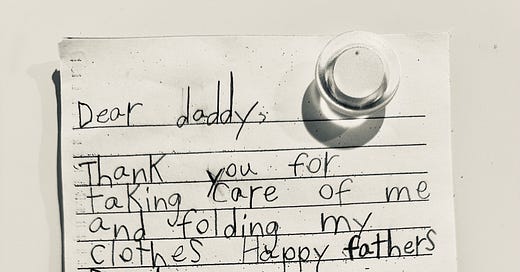 Dear daddy,
Thank you for
taking care of me
and folding my
clothes Happy fathers